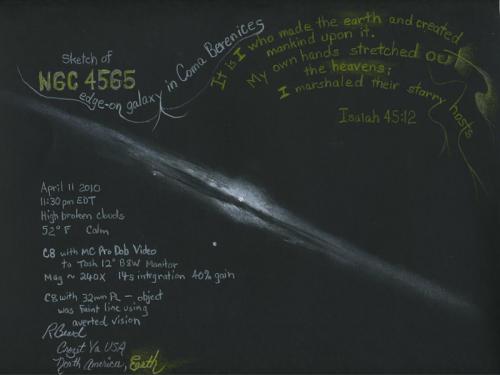 Sketch of
NGC 4565
edge-on galaxy in Coma Berenices
It is I who made the earth and created
mankind upon it.
My own hands stretched out
the heavens;
I marshaled their starry hosts
Isaiah 45:12
April 11 2010
11:30 pm EDT
High broken clouds
52° F Calm
C8 with MC Pro Dob Video
to Tosh 12" B&W Monitor
Mag ~ 240X 14s integration 40% gain
C8 with 32mm PL - object
was faint line using
averted vision
Va USA
North America, Earth